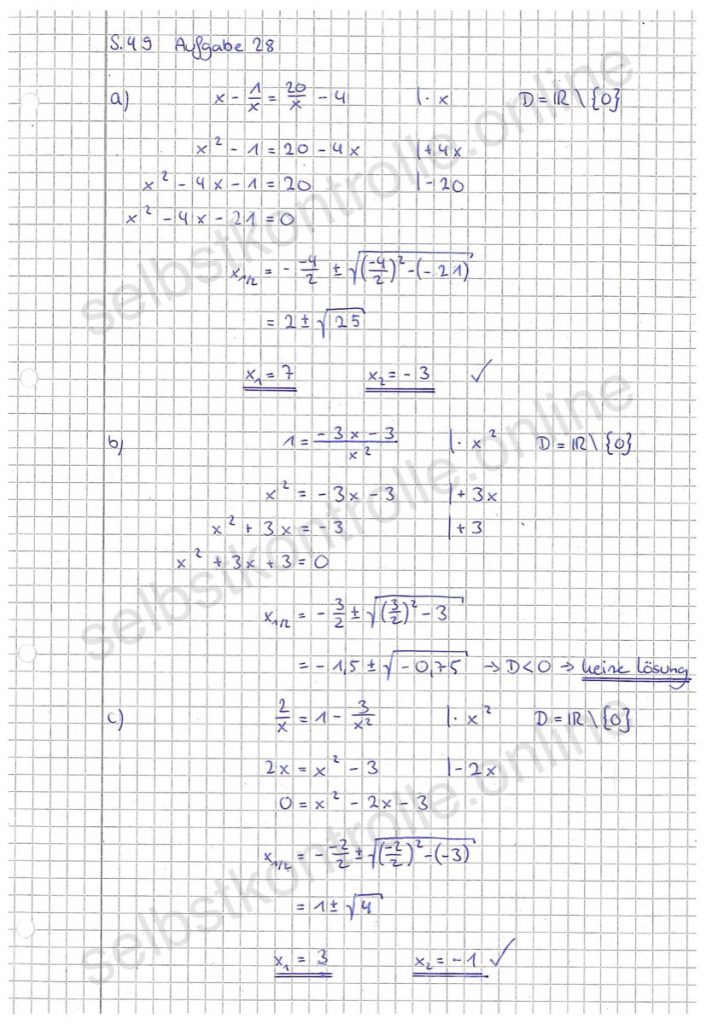 S.49 Aufgabe 28
a) x - 1/x = 20/x - 4 | · x D = ℝ \ {0}
x² - 1 = 20 - 4x | + 4x
x² - 4x - 1 = 20 | - 20
x² - 4x - 21 = 0
x₁/₂ = - -4/2 ± √((-4/2)² - (-21))
= 2 ± √25
x₁ = 7 x₂ = -3 ✓
b) 1 = (-3x - 3)/x² | · x² D = ℝ \ {0}
x² = -3x - 3 | + 3x
x² + 3x = -3 | + 3
x² + 3x + 3 = 0
x₁/₂ = - 3/2 ± √((3/2)² - 3)
= -1,5 ± √(-0,75) → D < 0 → keine Lösung
c) 2/x = 1 - 3/x² | · x² D = ℝ \ {0}
2x = x² - 3 | - 2x
0 = x² - 2x - 3
x₁/₂ = - -2/2 ± √((-2/2)² - (-3))
= 1 ± √4
x₁ = 3 x₂ = -1 ✓
selbstkontrolle.online
selbstkontrolle.online
selbstkontrolle.online